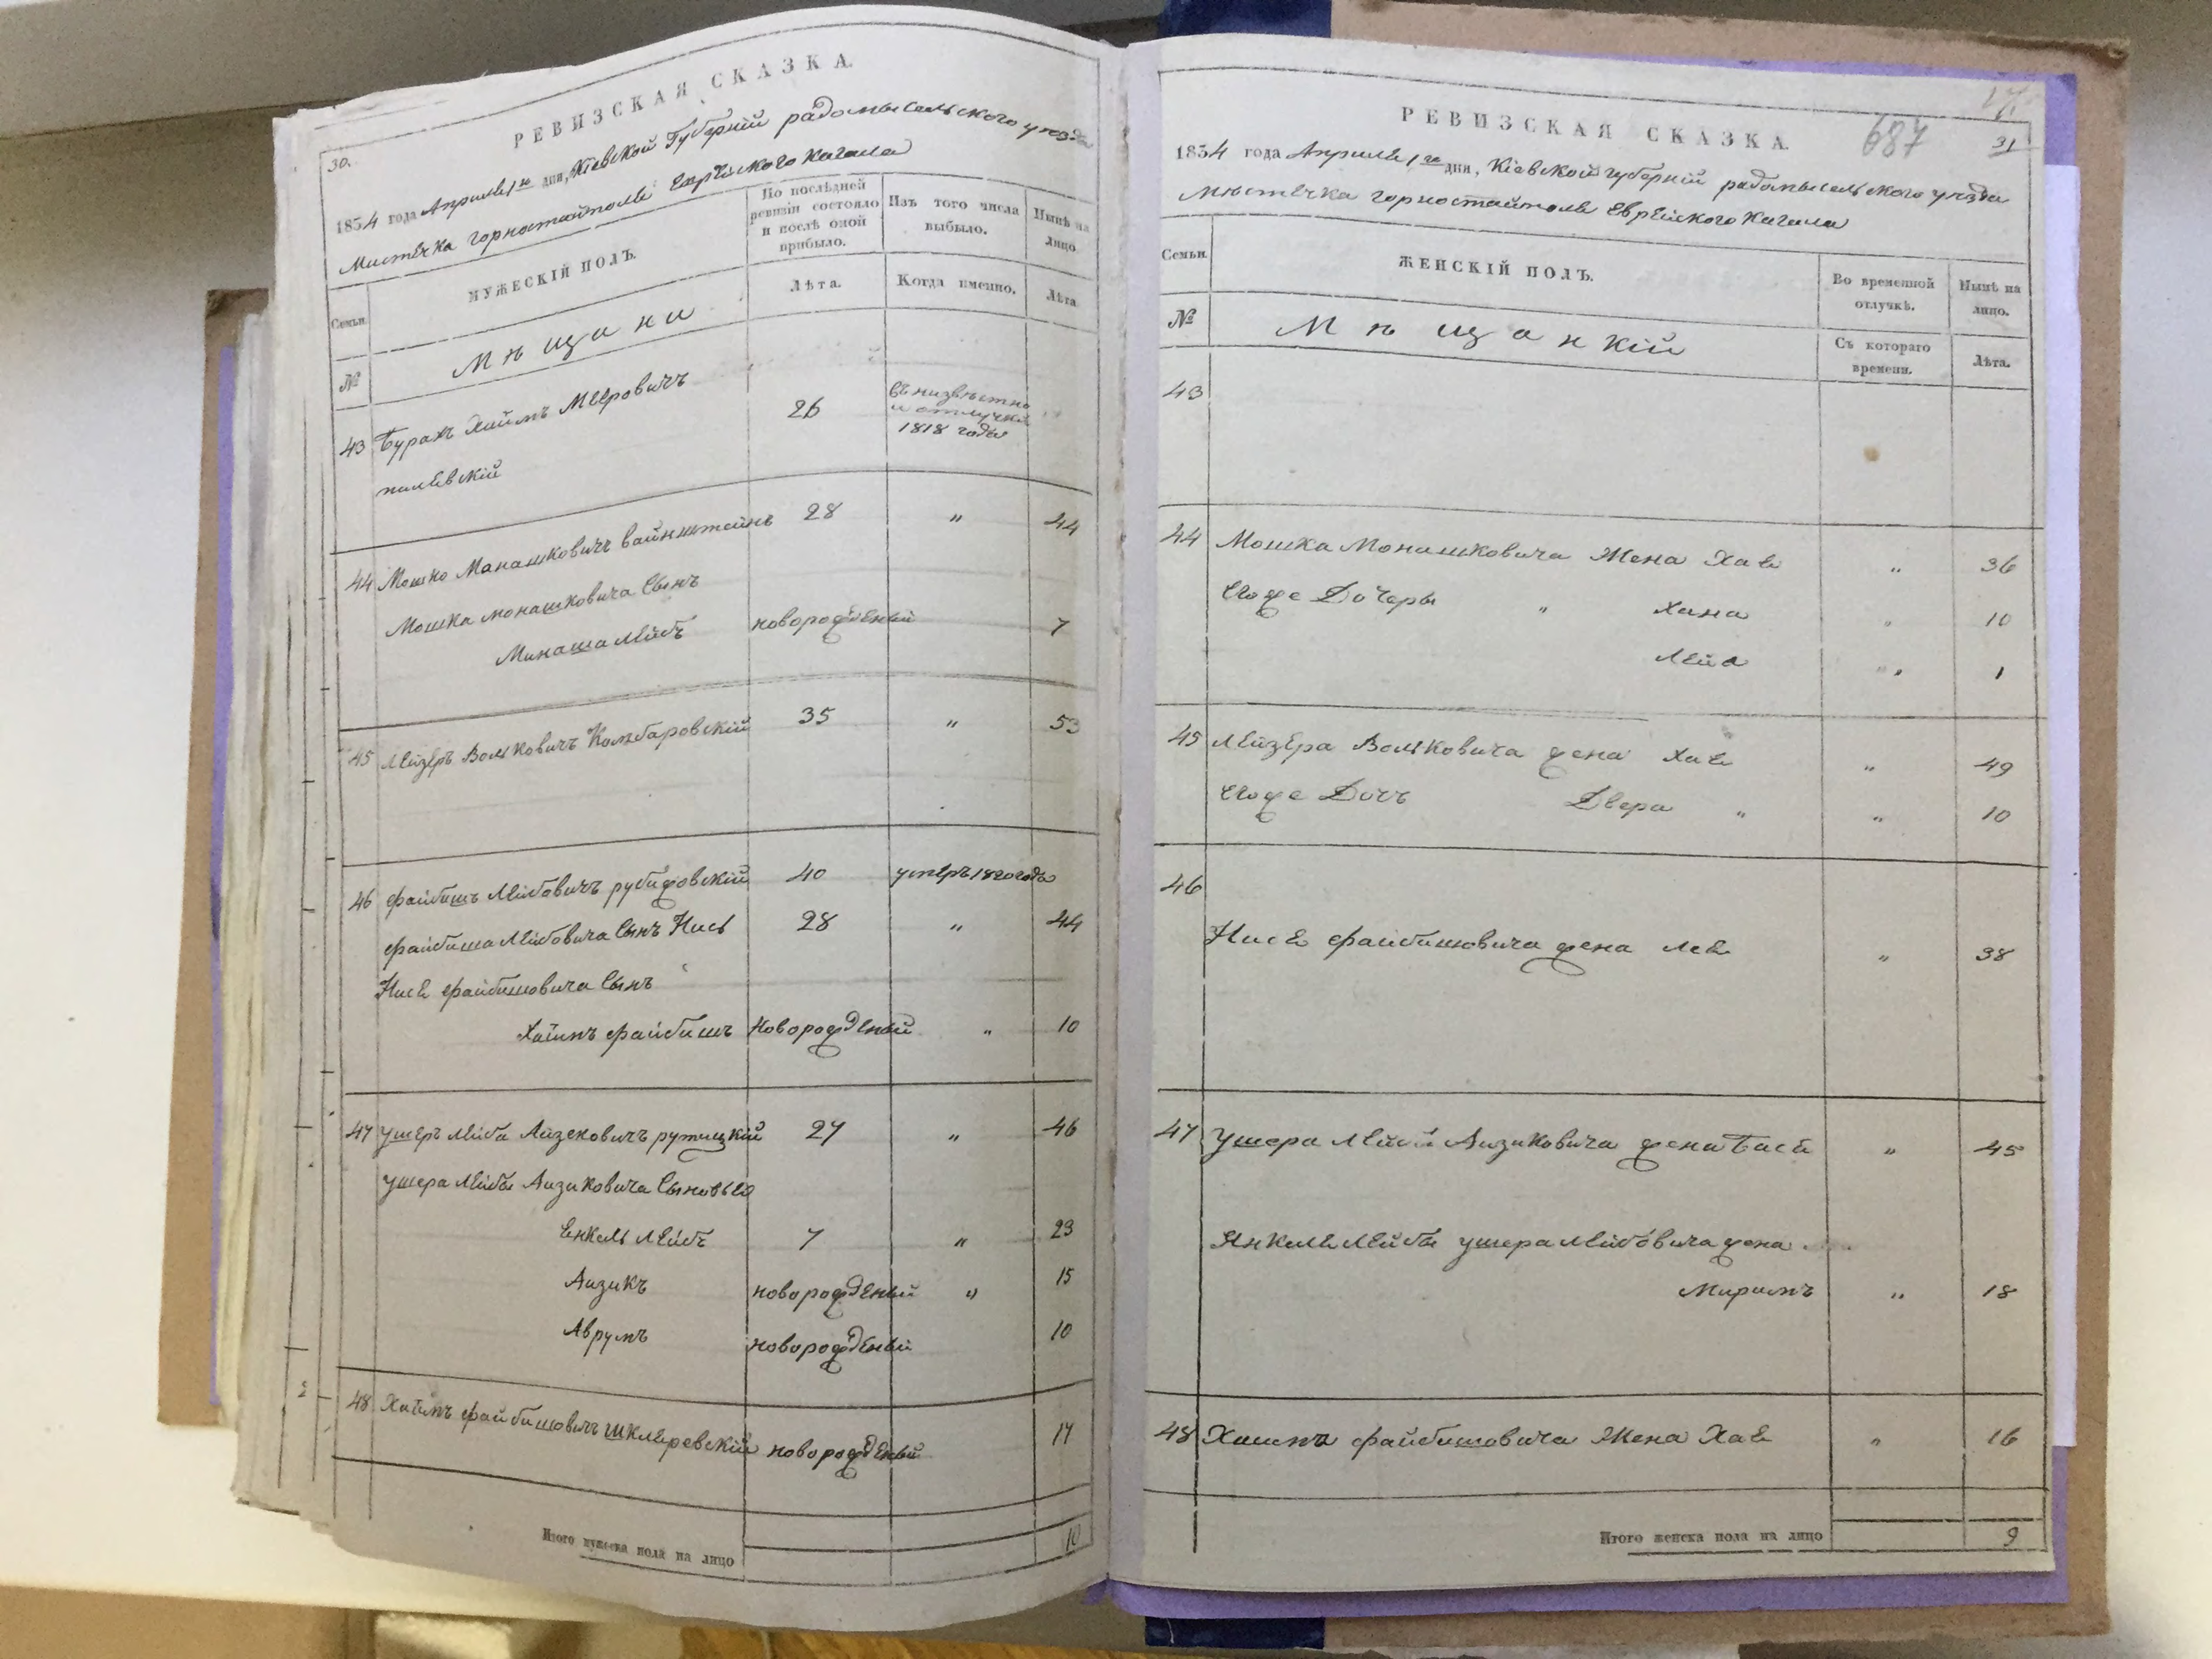 РЕВИЗСКАЯ СКАЗКА.
30.
1834 года Апреля 1го дня, Кіевской Губерніи радомысельского уезда
Мистечка горностайполя Еврейского Кагала
Семьи.
МУЖЕСКІЙ ПОЛЪ.
По послѣдней ревизіи состояло и послѣ оной прибыло.
Изъ того числа выбыло.
Нынѣ на лицо
Лѣта.
Когда именно.
Лѣта
№
Мѣщани
43 Бурахъ Хаимъ Мееровичъ 26
1818 года
44 Мошко Манашковичъ Вайнштейнъ 28 " 44
Мошка Монашковича Сынъ
Минаша Лейбъ новорожденый 7
45 Лейзеръ Вольковичъ Комбаровскій 35 " 53
46 Файбишъ Лейбовичъ 40 умеръ 1820 года
Файбиша Лейбовича Сынъ Нись 28 " 44
Нисе Файбишовича Сынъ
Хаимъ Файбишъ Новорожденый " 10
47 Ушеръ Лейба Айзековичъ 27 " 46
Ушера Лейбы Аизиковича Сыновья
Енкель Лейбъ 7 " 23
Аизикъ новорожденый " 15
Аврумъ новорожденый 10
48 Хаимъ Файбишовичъ Шкляревскій новорожденый 17
Итого мужеска пола на лицо 10
РЕВИЗСКАЯ СКАЗКА.
687
31
1834 года Апреля 1го дня, Кіевской губерніи радомысельского уезда
Мѣстечка горностайполя Еврейского Кагала
Семьи.
ЖЕНСКІЙ ПОЛЪ.
Во временной отлучкѣ.
Нынѣ на лицо.
№
Мѣщанкій
Съ котораго времени.
Лѣта.
43
44 Мошка Монашковича Жена Хае " 36
Егоже Дочеры " Хана " 10
Лейа " 1
45 Лейзера Вольковича жена Хае " 49
Егоже Дочъ Двера " " 10
46
Нисе Файбишовича жена Лее " 38
47 Ушера Лейби Аизиковича жена Басе " 45
Янкеле Лейбы Ушера Лейбовича жена
Миримъ " 18
48 Хаима Файбишовича Жена Хае " 16
Итого женска пола на лицо 9